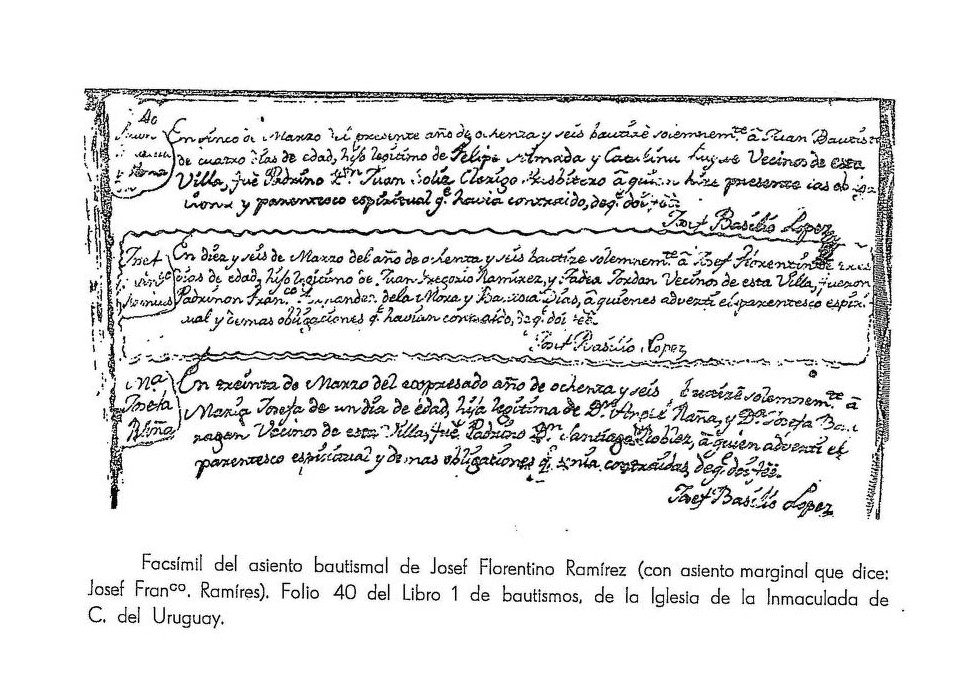 40
En cinco de Marzo del presente año de ochenza y seis bautizè solemnem.te â Juan Bautista
de cuatro dias de edad, hijo legitimo de Felipe Almada y Catalina Vecinos de esta
Villa, fuè Padrino D.n Juan Solis Clerigo Presbitero â quien hize presente las
y parentesco espiritual q.e havia contraido, de q.e doi fèè
Josef Basilio Lopez
Josef
Ramires
En diez y seis de Marzo del año de ochenza y seis bautize solemnem.te â Josef Florentin de tres
dias de edad, hijo legitimo de Juan Gregorio Ramirez, y Tadea Jordan Vecinos de esta Villa, fueron
Padrinon Fran.co de la Mora y Dias, â quienes adverti el parentesco espiri-
tual y demas obligaciones q.e havian contraido, de q.e doi fèè
Josef Basilio Lopez
M.a
Josefa
En treinta de Marzo del expresado año de ochenza y seis bautizè solemnem.te â
Maria Josefa de un dia de edad, hija legitima de D.n y D.a Josefa
Vecinos de esta Villa, fuè Padrino D.n Santiago â quien adverti el
parentesco espiritual y demas obligaciones q.e contraidas, de q.e doi fèè
Josef Basilio Lopez
Facsímil del asiento bautismal de Josef Florentino Ramírez (con asiento marginal que dice:
Josef Franco. Ramíres). Folio 40 del Libro 1 de bautismos, de la Iglesia de la Inmaculada de
C. del Uruguay.